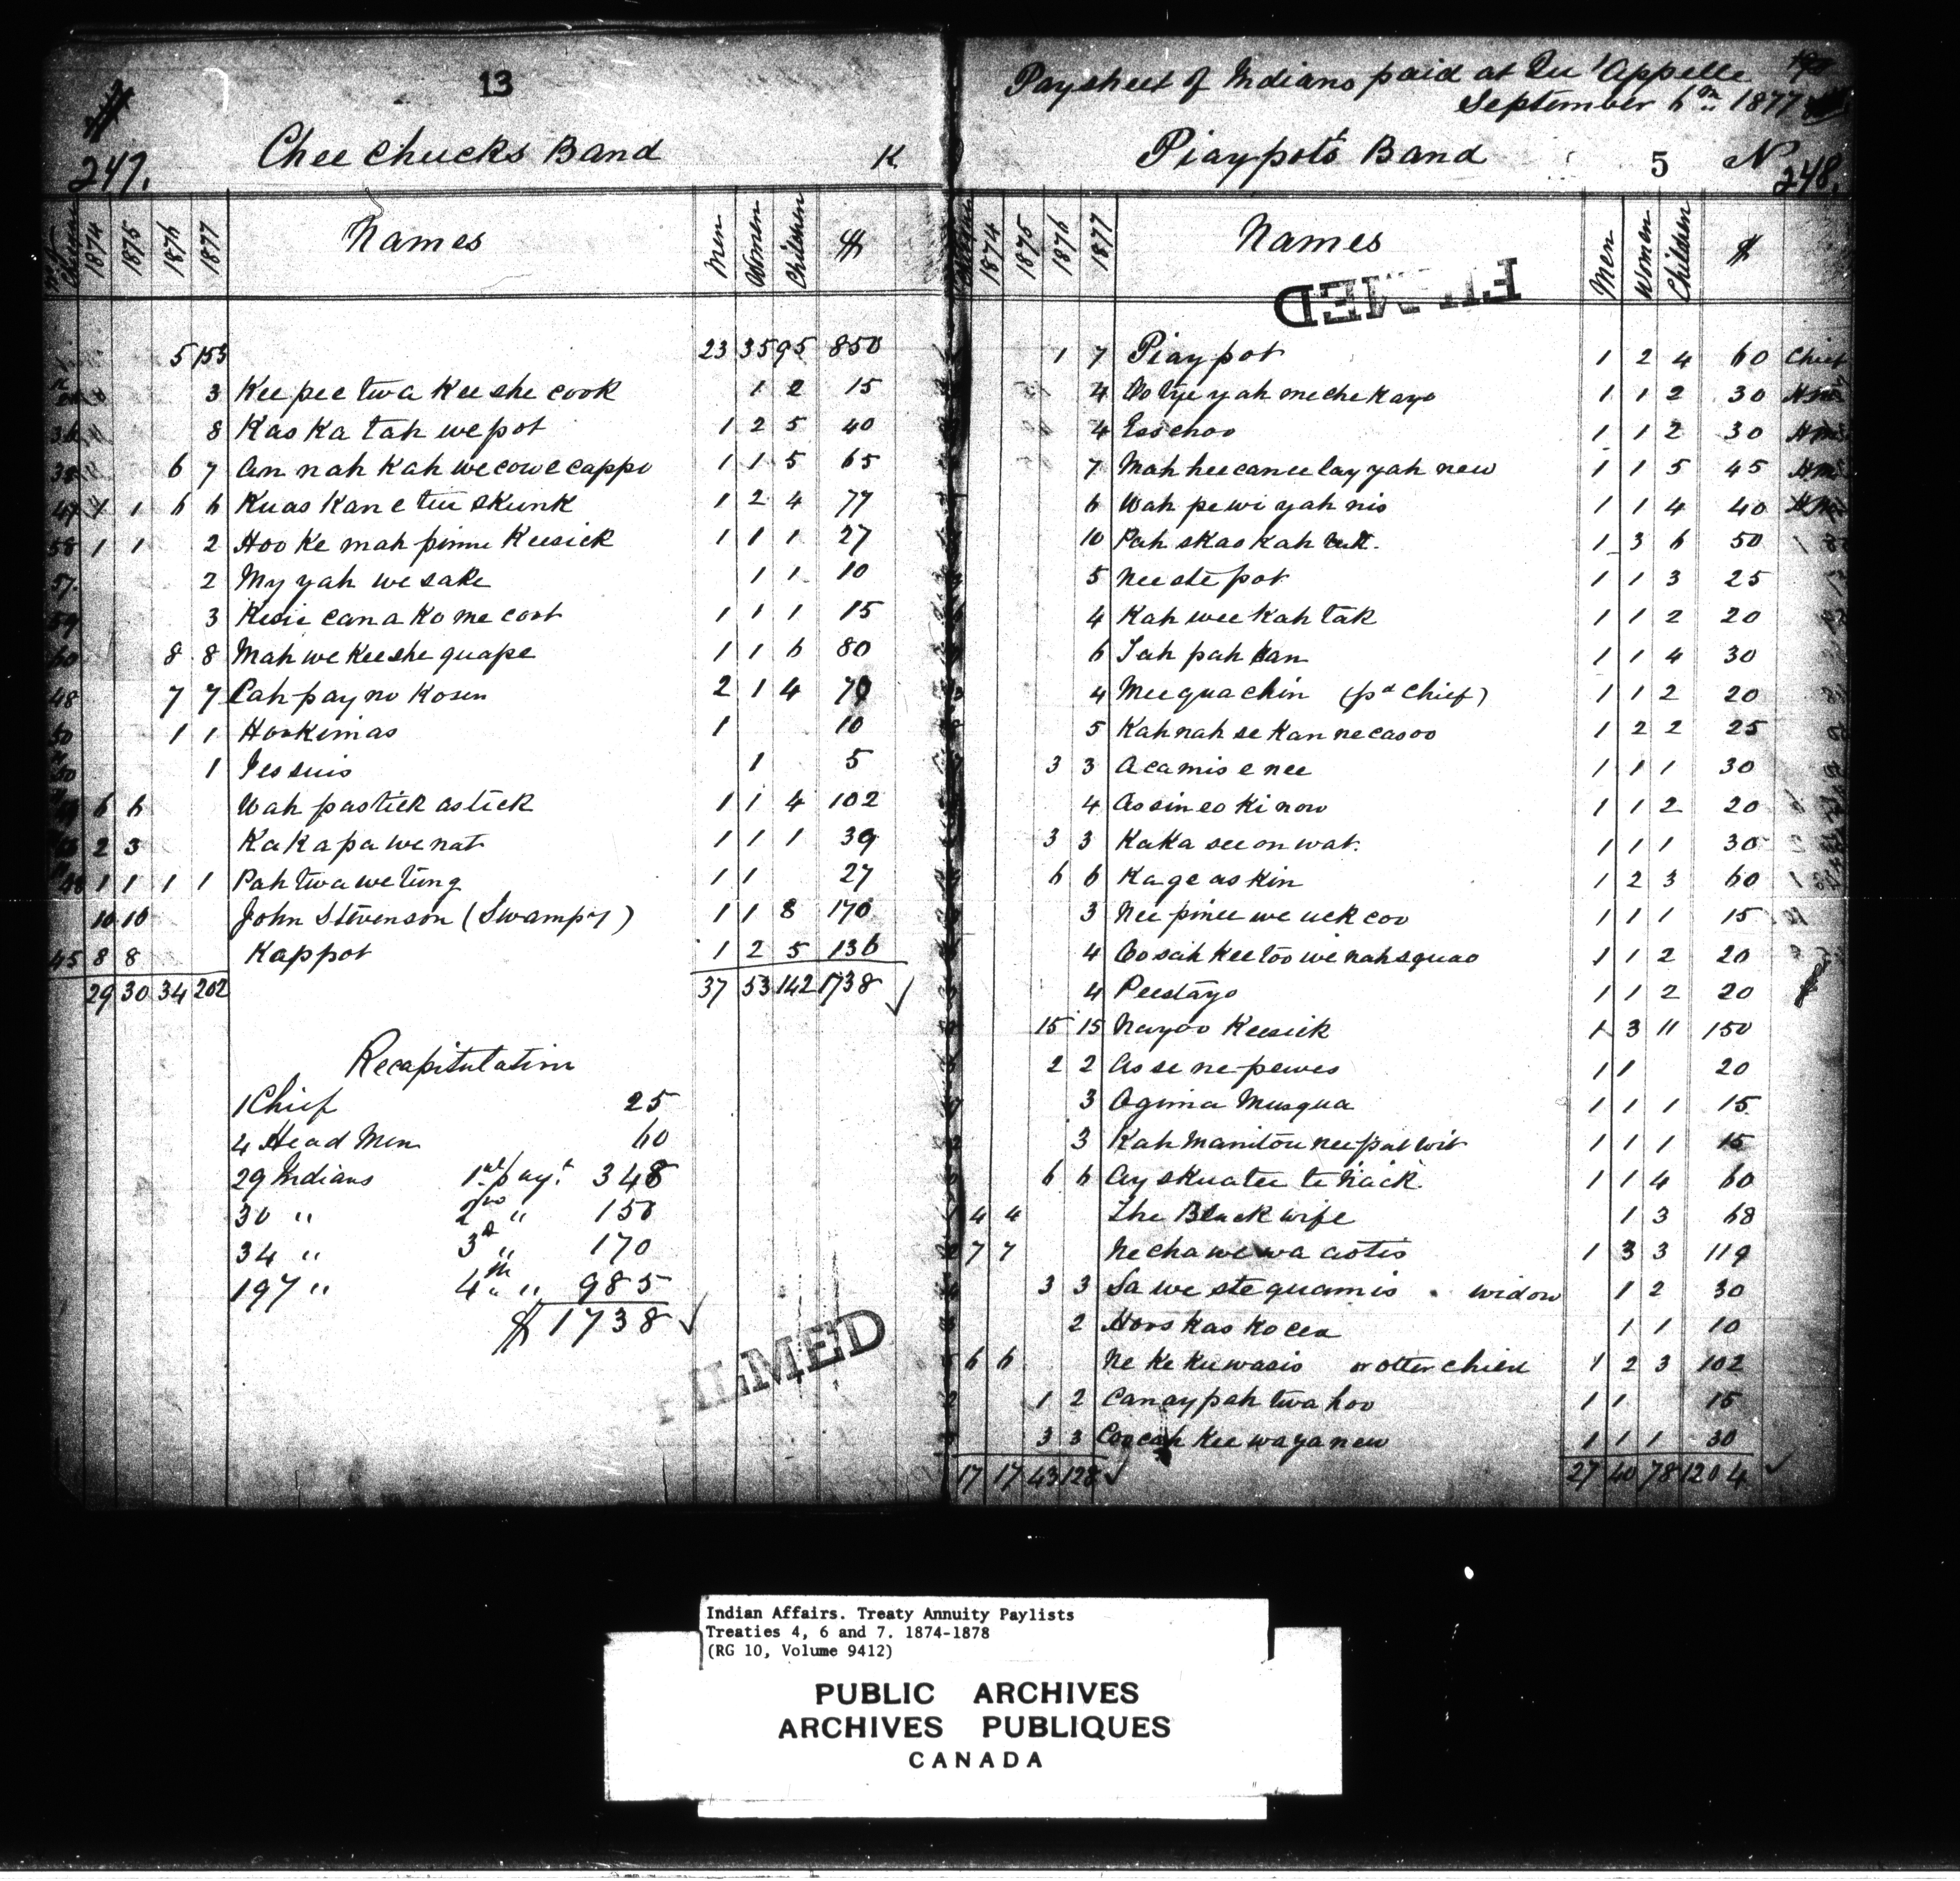 13
247.
Chee Chucks Band K
No of Cheque 1874 1875 1876 1877 Names Men Women Children $
5 153 23 35 95 850
3 Kee pee twa Kee she cook 1 2 15
8 Kas Ka tah we pot 1 2 5 40
6 7 An nah Kah we cow e cappo 1 1 5 65
1 6 6 Kuas Kan e tuu Skunk 1 2 4 77
58 1 1 2 Hoo Ke mah pinne Keesick 1 1 1 27
57. 2 My yah we sake 1 1 10
59 3 Kesie can a Ko me coot 1 1 1 15
60 8 8 Mah we Kee she quape 1 1 6 80
48 7 7 Cah pay no Kosen 2 1 4 70
50 1 1 Hookimas 1 10
1 Jessuis 1 5
6 6 Wah pastick astick 1 1 4 102
2 3 Ka Ka pa we nat 1 1 1 39
1 1 1 1 Pah twa we tung 1 1 27
10 10 John Stevenson (Swampy) 1 1 8 170
45 8 8 Kappot 1 2 5 136
29 30 34 202 37 53 142 1738 ✓
Recapitulation
1 Chief 25
4 Head Men 60
29 Indians 1st payt. 348
30 " 2nd " 150
34 " 3d " 170
197 " 4th " 985
$1738 ✓
FILMED
Paysheet of Indians paid at Qu'Appelle
September 6th 1877
Piaypot's Band 5 N
248.
Cheque 1874 1875 1876 1877 Names Men Women Children $
FILMED
1 7 Piaypot 1 2 4 60 Chief
4 Oo tye yah me che Kayo 1 1 2 30 Hm
4 Esschoo 1 1 2 30 Hm
7 Mah hee canee lay yah new 1 1 5 45 Hm
6 Wah pe wi yah nis 1 1 4 40 Hm
10 Pah skas Kah 1 3 6 50
5 Nee ste pot 1 1 3 25
4 Kah wee Kah tak 1 1 2 20
6 Tah pah tan 1 1 4 30
4 Mee qua chin (pd Chief) 1 1 2 20
5 Kah nah se Kan ne casoo 1 2 2 25
3 3 Acamis e nee 1 1 1 30
4 Assin eo Ki now 1 1 2 20
3 3 Kaka see on wat. 1 1 1 30
6 6 Ka ge as Kin 1 2 3 60
3 Nee pinee we uck coo 1 1 1 15
4 Oo sah Kee too we nah squao 1 1 2 20
4 Peestayo 1 1 2 20
15 15 Nayoo Keesick 1 3 11 150
2 2 As se ne pewes 1 1 20
3 Ogima Musqua 1 1 1 15
3 Kah Manitou nee pat wit 1 1 1 15
6 6 Ay skuatee te nack 1 1 4 60
4 4 The Black wife 1 3 68
7 7 Ne cha we wa astis 1 3 3 119
3 3 Sa we ste quamis widow 1 2 30
2 Hoos Kas Ko cea 1 1 10
6 6 Ne Ke Ku wasis or otter child 1 2 3 102
1 2 Can ay pah twa hoo 1 1 15
3 3 Coo cah Kee wa ya new 1 1 1 30
17 17 43 128 ✓ 27 40 78 1204 ✓
Indian Affairs. Treaty Annuity Paylists
Treaties 4, 6 and 7. 1874-1878
(RG 10, Volume 9412)
PUBLIC ARCHIVES
ARCHIVES PUBLIQUES
CANADA